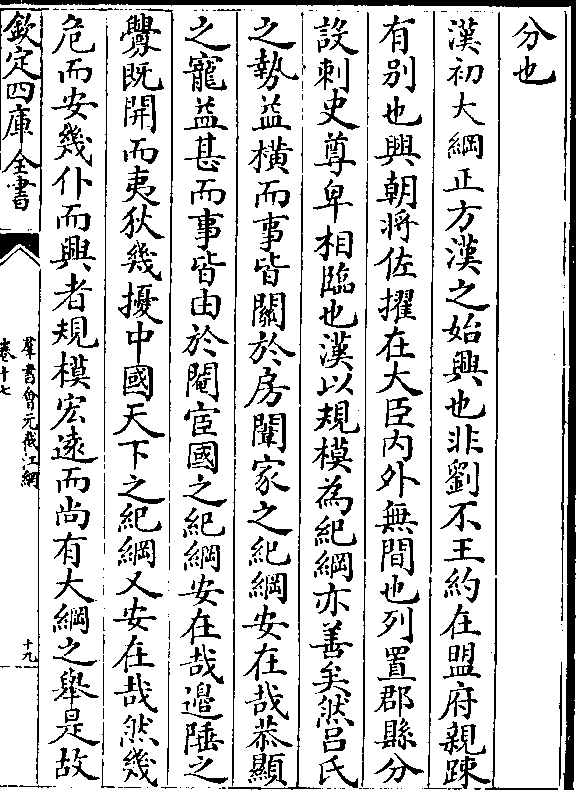 分也
漢初大綱正方漢之始興也非劉不王約在盟府親踈
有别也興朝將佐擢在大臣内外無間也列置郡縣分
設刺史尊卑相臨也漢以規模為紀綱亦善矣然吕氏
之勢益橫而事皆關於房闈家之紀綱安在哉恭顯
之寵益甚而事皆由於閹宦國之紀綱安在哉邉陲之
釁既開而夷狄幾擾中國天下之紀綱又安在哉然幾
危而安幾仆而興者規模宏遠而尚有大綱之舉是故
欽定四庫全書
羣書會元截江網
卷十七
十九